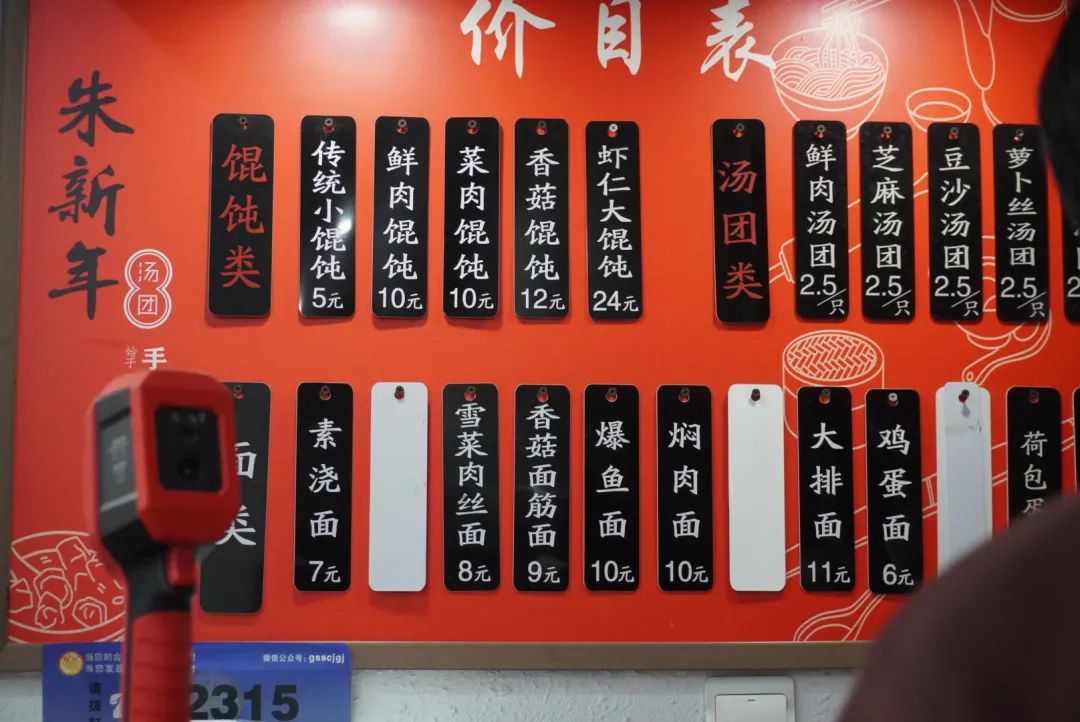 价目表
朱新年
汤团
始于
手
馄饨类
传统小馄饨
5元
鲜肉馄饨
10元
菜肉馄饨
10元
香菇馄饨
12元
虾仁大馄饨
24元
汤团类
鲜肉汤团
2.5/只
芝麻汤团
2.5/只
豆沙汤团
2.5/只
萝卜丝汤团
2.5/只
面类
素浇面
7元
雪菜肉丝面
8元
香菇面筋面
9元
爆鱼面
10元
焖肉面
10元
大排面
11元
鸡蛋面
6元
荷包蛋
当您的合
当您发现
微信公众号:gsscjgj
请拨打
2315